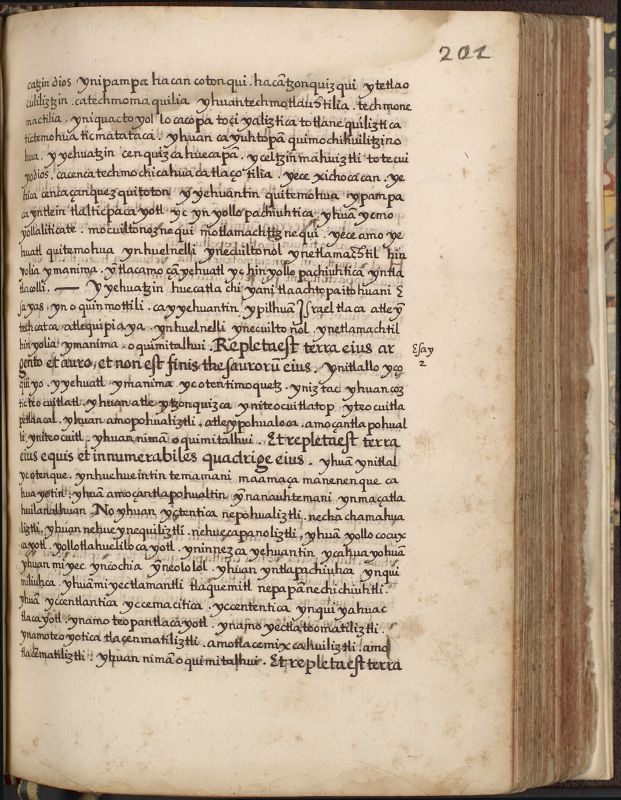 201
catzin dios ynipampa ha can coton qui . ha cātzonquiz qui y tetlao
culiliztzin . catechmomaquilia yhuantechmotlaustilia . techmone
mactilia . yniquac toyol lo cacopa toçi yaliztica totlanequiliztica
tictemohua ticmatataca . yhuan ca yuhtopā quimochihuilitzino
hua . y yehuatzin cenquizcahuecapā . yceltzin mahuiztli totecui
yodios . cacenca techmochicahuacatlaço tilia . yece xichocacan . ye
hica cenca çanquezquitoton y yehuantin quitemohua ypampa
ca yntlein tlalticpacayotl yc yn yollo pachiuhtica yhuā ycmo
yollaliticate . mocuiltonoznequi motlamachtiznequi . yece amo ye
huatl quitemohua ynhuelnelli ynecuiltonol ynetlamachtil hin
yolia ymanima . ytlacamo çayehuatl yc hin yollo pachiuhtica yntla
tlacolli . — Y yehuatzin huecatlachiyani tlaachtopaitohuani E
sayas . yn oquinmottili . ca yyehuantin ypilhuā Jsrael tlaca atleȳ
techcatca atlequipiaya . ynhuelnelli ynecuiltonol . ynetlamachtil
hinyolia ymanima . oquimitalhui . Repleta est terra eius ar
gento et auro, et non est finis thesaurorū eius . ynitlallo yço
Esay
2
quiyo . yyehuatl ymanima ycotentimoquetz . yniztac yhuan coz
ticteocuitlatl . yhuan atle ytzonquizca yniteocuitlatop yteocuitla
petlacal . yhuan amopohualiztli . atleypohualoca . amoçantla pohual
li yniteocuitl . yhuan nimā oquimitalhui . Et repleta est terra
eius equis et innumerabiles quadrige eius . yhuā ynitlal
ycotenque . ynhuehueintin temamani maamaça manenenque ca
huayotin . yhuā amoçantlapohualtin ynanauhtemani ynmaçatla
huilananhuan . No yhuan yctentica nepohualiztli . nechachamahua
liztli . yhuan nehueynequiliztli . nehueçapanoliztli , yhuā yollococux
cayotl . yollotlahuelilocayotl . yninnezca yehuantin ycahuayohuā
yhuan miyec yncochia yneololol . yhuan yntlapachiuhca ynqui
miliuhca . yhuā miyectlamantli tlaquemitl nepapānechichiuhtli .
yhuā yccentlantica yccemacitica . yccententica ynquiyahuac
tlacayotl . ynamo teopantlacayotl . ynamo yectlateomatiliztli .
ynamoteoyotica tlaçenmatiliztli . amotlacemixcahuiliztli . amo
tlacēmatiliztli . yhuan nimā oquimitalhui . Et repleta est terra